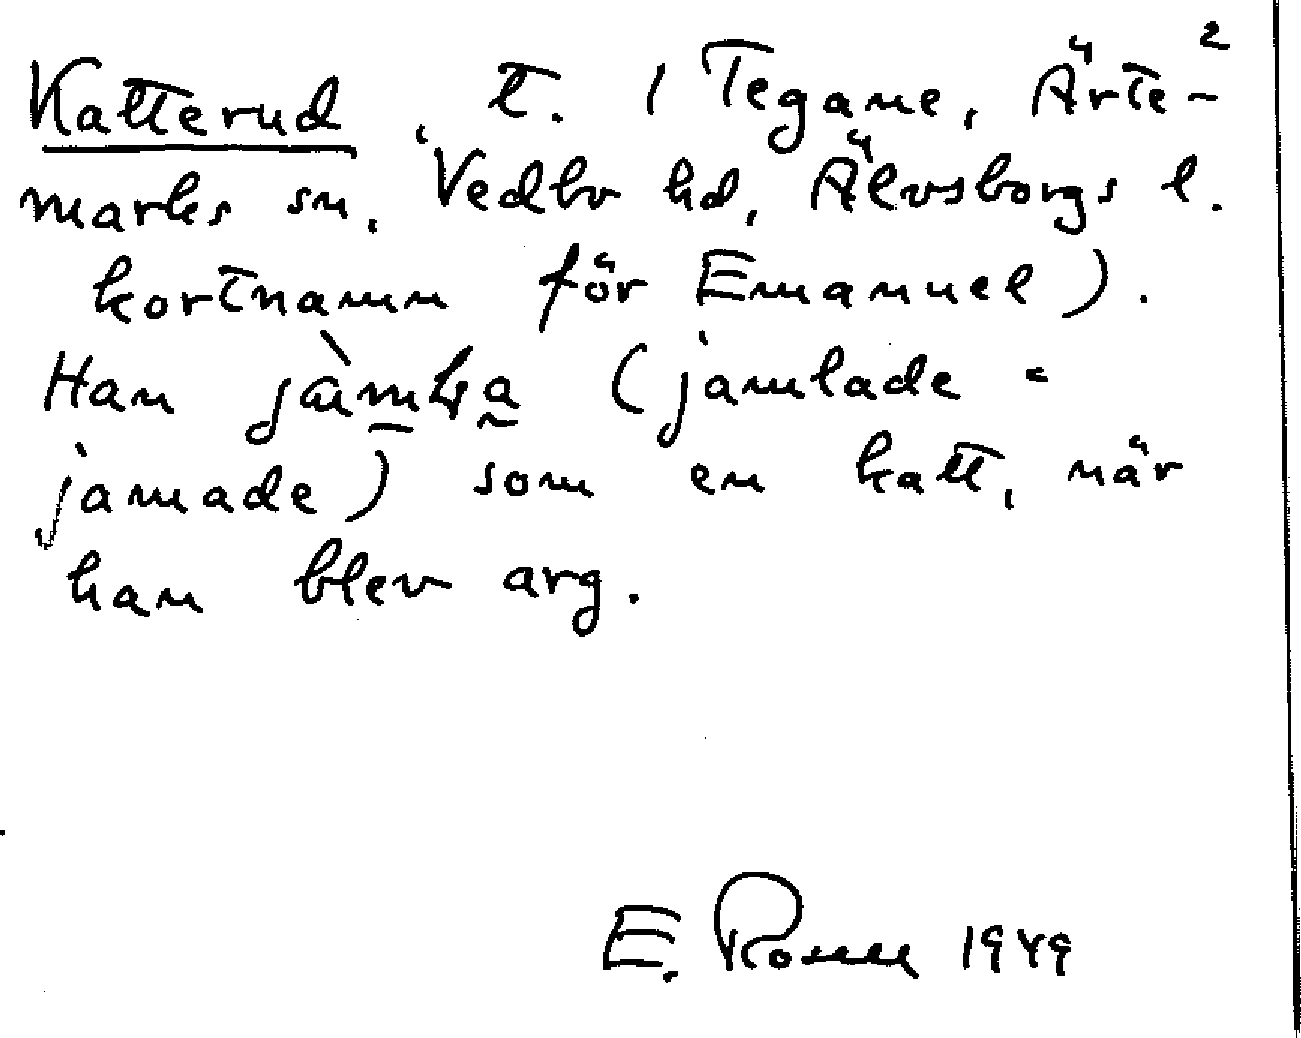 Katterud, t. i Tegane, Ärte- 2
marks sn, Vedbo hd, Älvsborgs l.
kortnamn för Emanuel).
Han (jamlade =
jamade) som en katt, när
han blev arg.
E. Rosell 1949